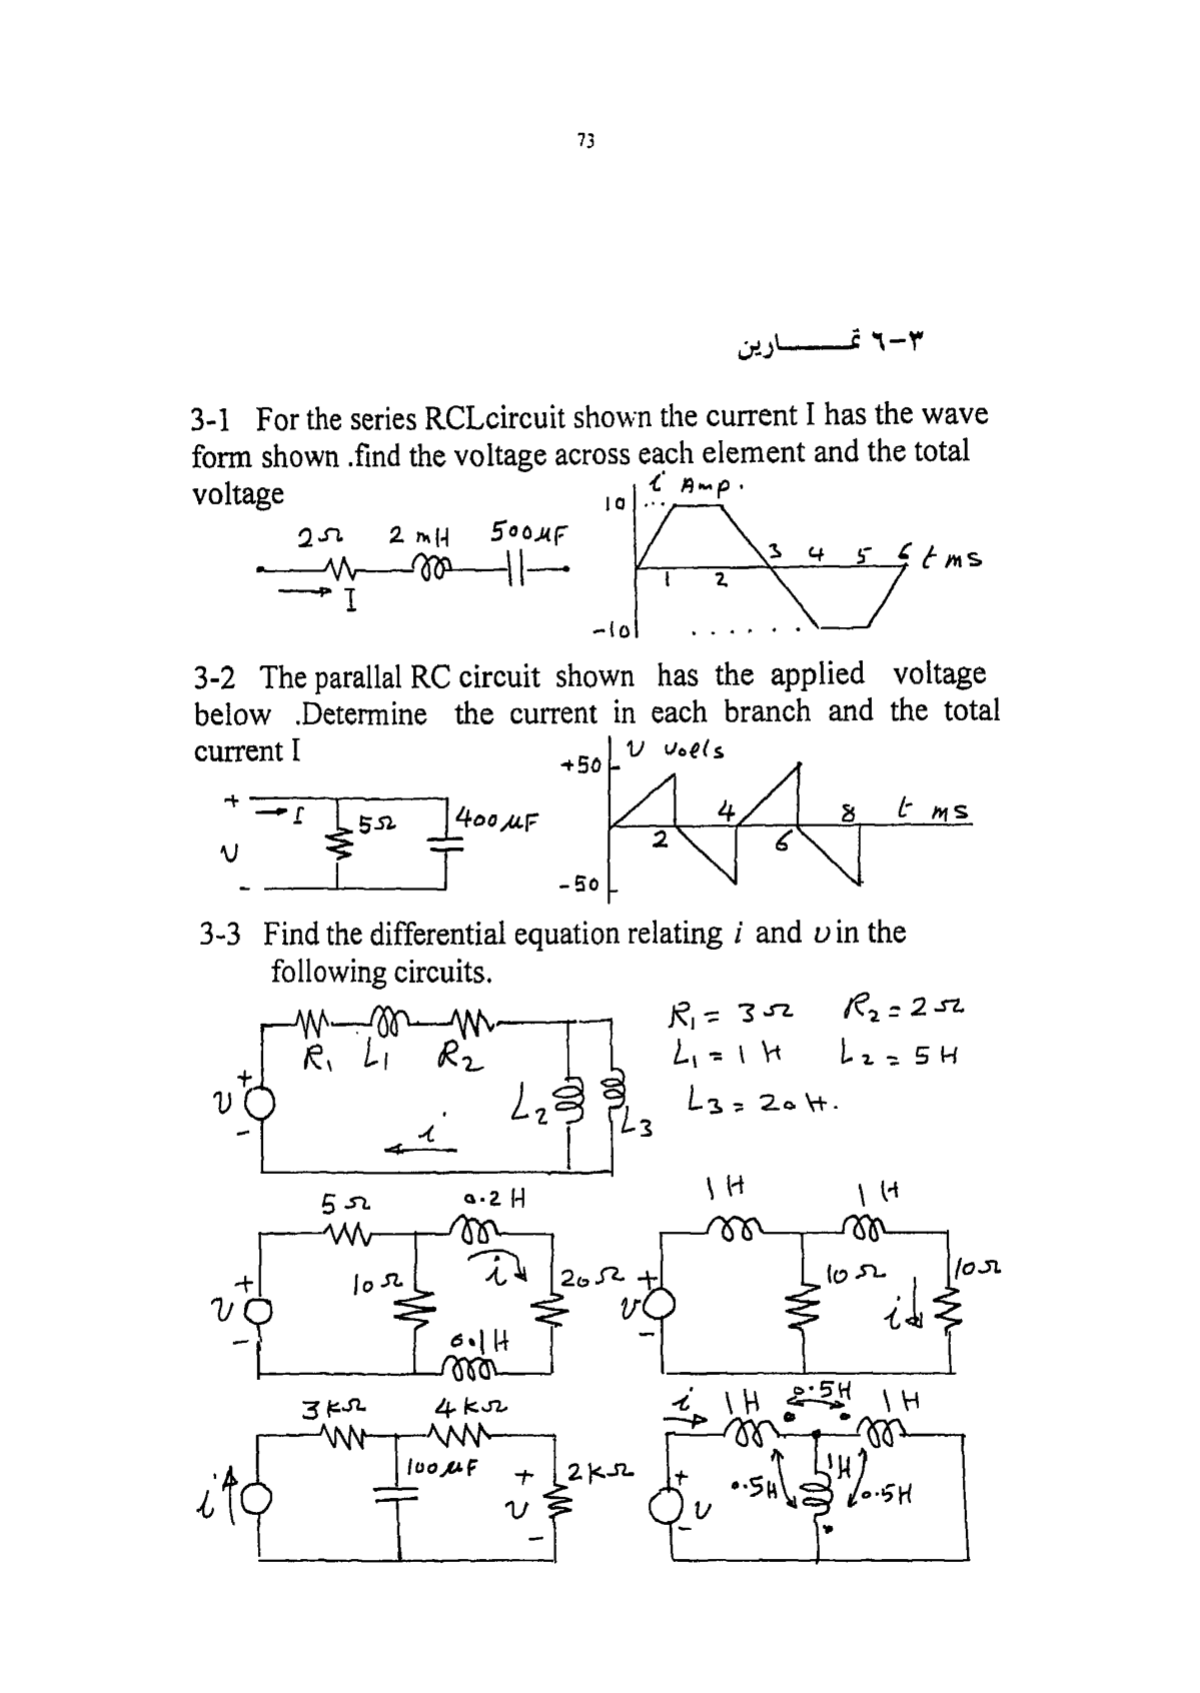 73
٣-٦ تمـــــارين
3-1 For the series RCLcircuit shown the current I has the wave
form shown .find the voltage across each element and the total
voltage
i Amp.
10
2Ω 2 mH 500μF
I
1 2 3 4 5 6 t ms
-10
3-2 The parallal RC circuit shown has the applied voltage
below .Determine the current in each branch and the total
current I
+50 v voels
+ I
5Ω 400μF
v
-
2 4 6 8 t ms
-50
3-3 Find the differential equation relating i and υ in the
following circuits.
R₁ = 3Ω R₂ = 2Ω
L₁ = 1 H L₂ = 5 H
L₃ = 20 H.
R₁ L₁ R₂
+
v
-
L₂ L₃
i
5Ω 0.2 H
10Ω i 20Ω
+
v
-
0.1H
1 H 1 H
+
v
-
10Ω i 10Ω
3 KΩ 4 KΩ
i 100μF
+
v
-
2KΩ
i 1 H 0.5H 1 H
0.5H 1H 0.5H
+
v
-